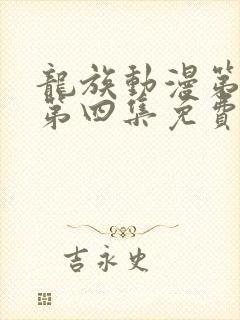 龍族動漫第
第四集免費
吉永史